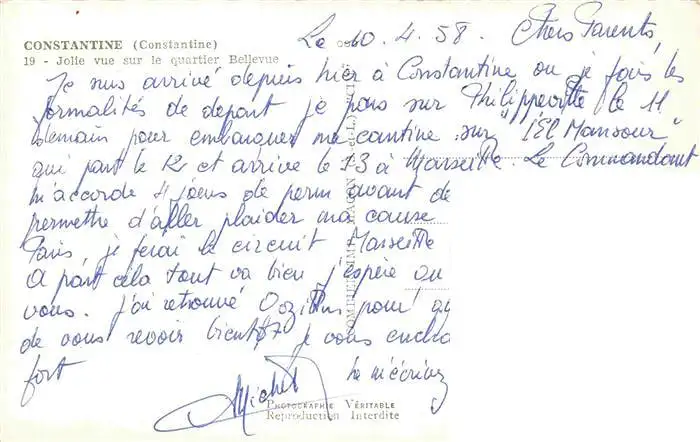 CONSTANTINE (Constantine)
19 - Jolie vue sur le quartier Bellevue
Le 10.4.58. Chers Parents,
Je suis arrivé depuis hier à Constantine ou je fais les
formalités de depart je pars sur Philippeville le 11
demain pour embarquer ma cantine sur "l'El Mansour"
qui part le 12 et arrive le 13 à Marseille. Le Commandant
m'accorde 4 jours de perm avant de
permettre d'aller plaider ma cause
Paris, je ferai le circuit Marseille
A part cela tout va bien j'espère
vous. J'ai retrouvé pour
de vous revoir bientôt je vous
fort
Michel
PHOTOGRAPHIE VÉRITABLE
Reproduction Interdite